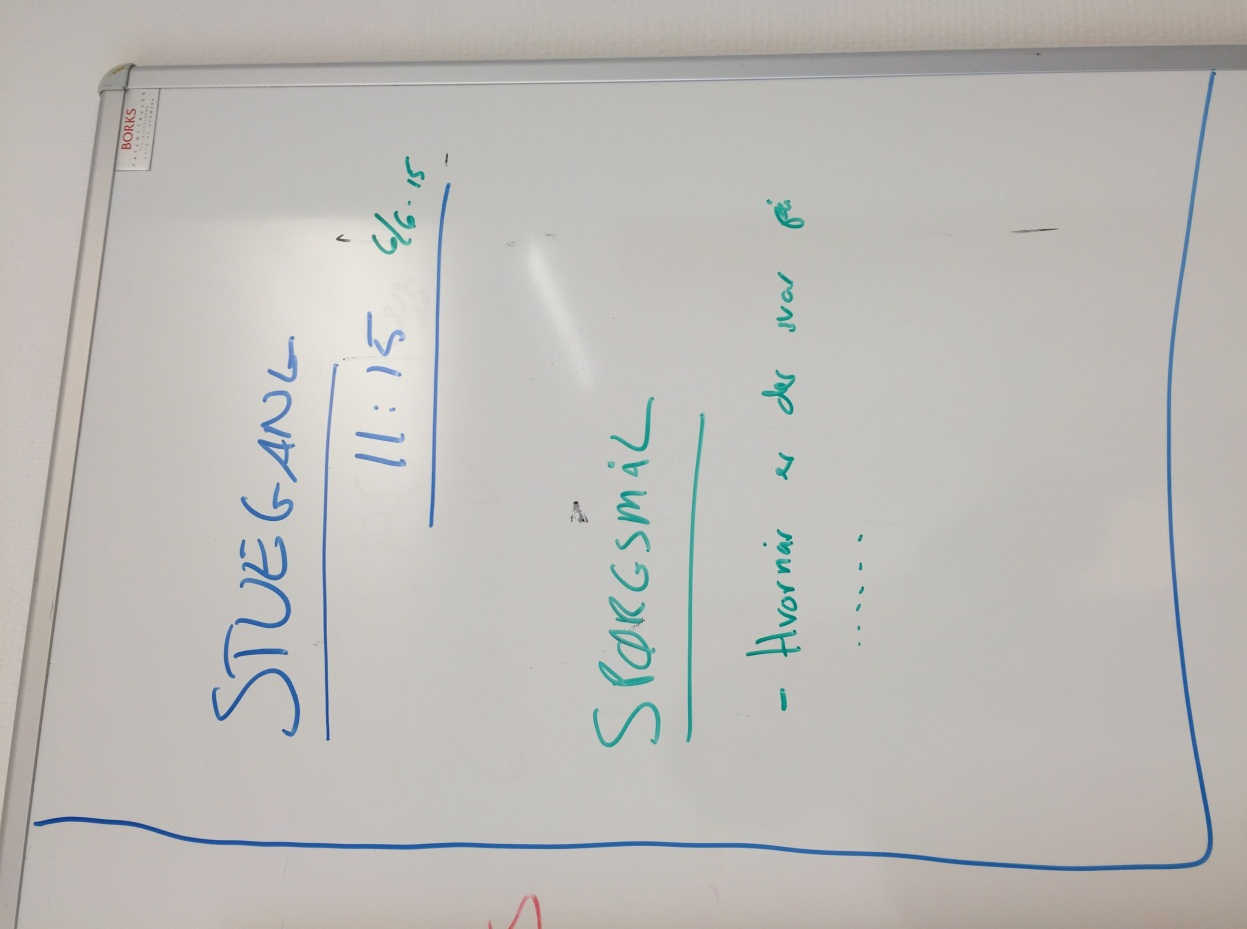 BORKS
STUEGANG
11:15 6/6-15
SPØRGSMÅL
- Hvornår er der svar på
......